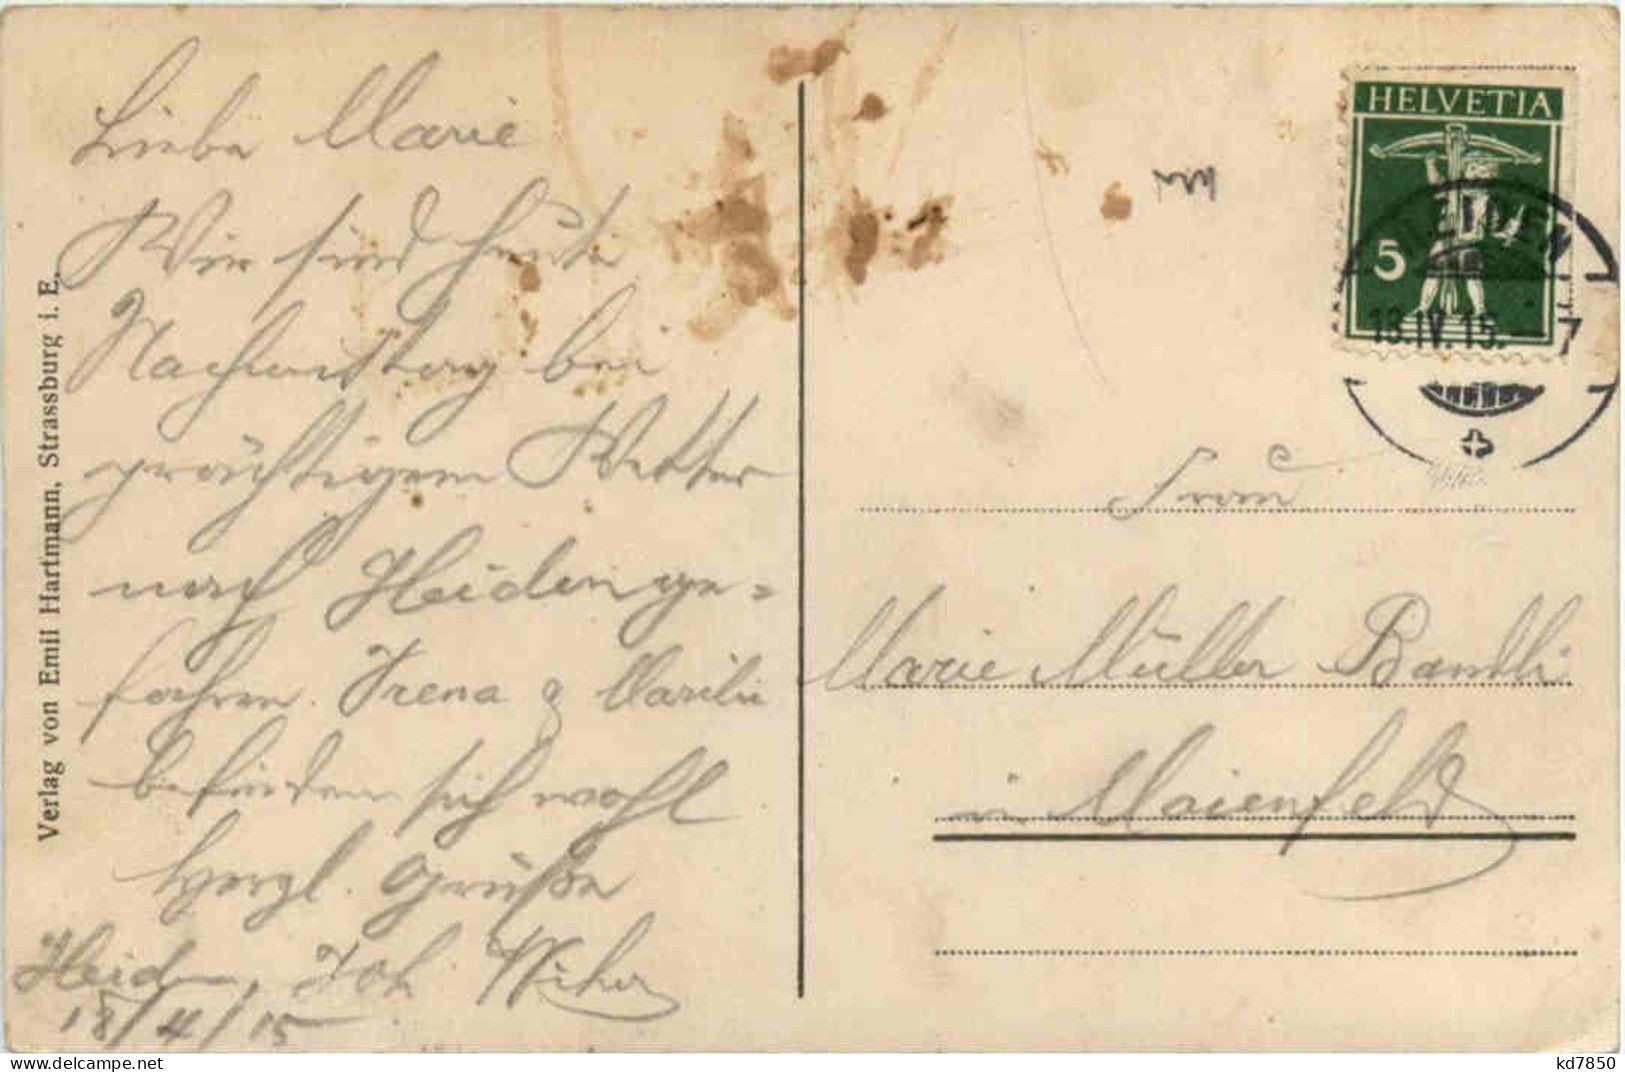 Verlag von Emil Hartmann, Strassburg i. E.
Liebe Marie
Wir sind heute
Nachmittag bei
prächtigem Wetter
nach Heiden ge=
fahren. Irena & Marili
befinden sich wohl
Herzl. Grüße
Heiden, Joh
18/4/15
HELVETIA
5
HEIDEN
IV.15. – 7
Frau
Marie Müller Bandli
in Maienfeld
kd7850